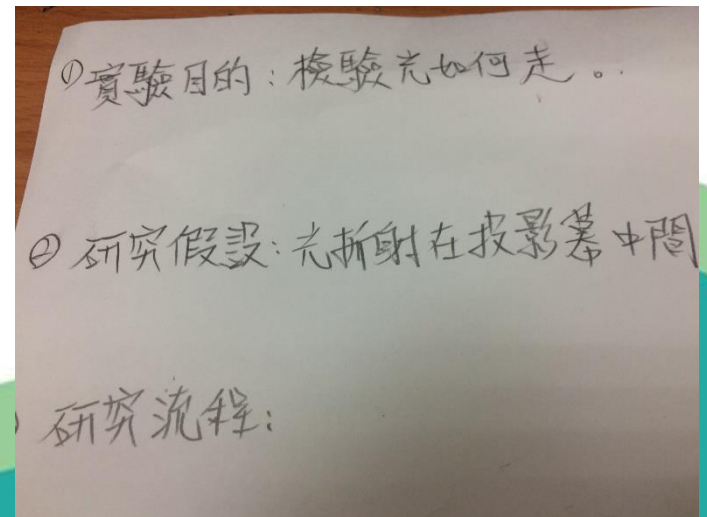 ① 實驗目的：檢驗光如何走。
② 研究假設：光折射在投影幕中間
研究流程：